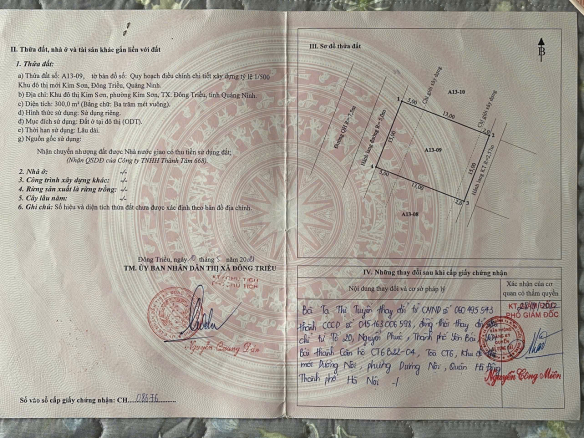 II. Thửa đất, nhà ở và tài sản khác gắn liền với đất
1. Thửa đất:
a) Thửa đất số: A13-09, tờ bản đồ số: Quy hoạch điều chỉnh chi tiết xây dựng tỷ lệ 1/500
Khu đô thị mới Kim Sơn, Đông Triều, Quảng Ninh.
b) Địa chỉ: Khu đô thị Kim Sơn, phường Kim Sơn, TX. Đông Triều, tỉnh Quảng Ninh.
c) Diện tích: 300,0 m² (Bằng chữ: Ba trăm mét vuông).
d) Hình thức sử dụng: Sử dụng riêng.
đ) Mục đích sử dụng: Đất ở tại đô thị (ODT).
e) Thời hạn sử dụng: Lâu dài.
g) Nguồn gốc sử dụng:
Nhận chuyển nhượng đất được Nhà nước giao có thu tiền sử dụng đất;
(Nhận QSDĐ của Công ty TNHH Thành Tâm 668).
2. Nhà ở: -/-
3. Công trình xây dựng khác: -/-
4. Rừng sản xuất là rừng trồng: -/-
5. Cây lâu năm: -/-
6. Ghi chú: Số hiệu và diện tích thửa đất chưa được xác định theo bản đồ địa chính.
Đông Triều, ngày tháng năm
TM. ỦY BAN NHÂN DÂN THỊ XÃ ĐÔNG TRIỀU
Nguyễn Quang
Số vào sổ cấp giấy chứng nhận: CH
III. Sơ đồ thửa đất
B
A13-10
Chỉ giới xây dựng
1
2
A13-09
4
3
A13-08
IV. Những thay đổi sau khi cấp giấy chứng nhận
Nội dung thay đổi và cơ sở pháp lý
Xác nhận của cơ
quan có thẩm quyền
Bà Tạ Thị Tuyên thay đổi từ CMND số 060495593
thành CCCD số 015163006593, đồng thời thay đổi
chỉ từ Tổ 20, Nguyễn Phúc, Thành phố Yên Bái
thành Căn hộ CT6B22-04, Toà CT6, Khu đô
mới Dương Nội, phường Dương Nội, Quận Hà Đông
Thành phố Hà Nội -/
PHÓ GIÁM ĐỐC
Nguyễn Công Miên